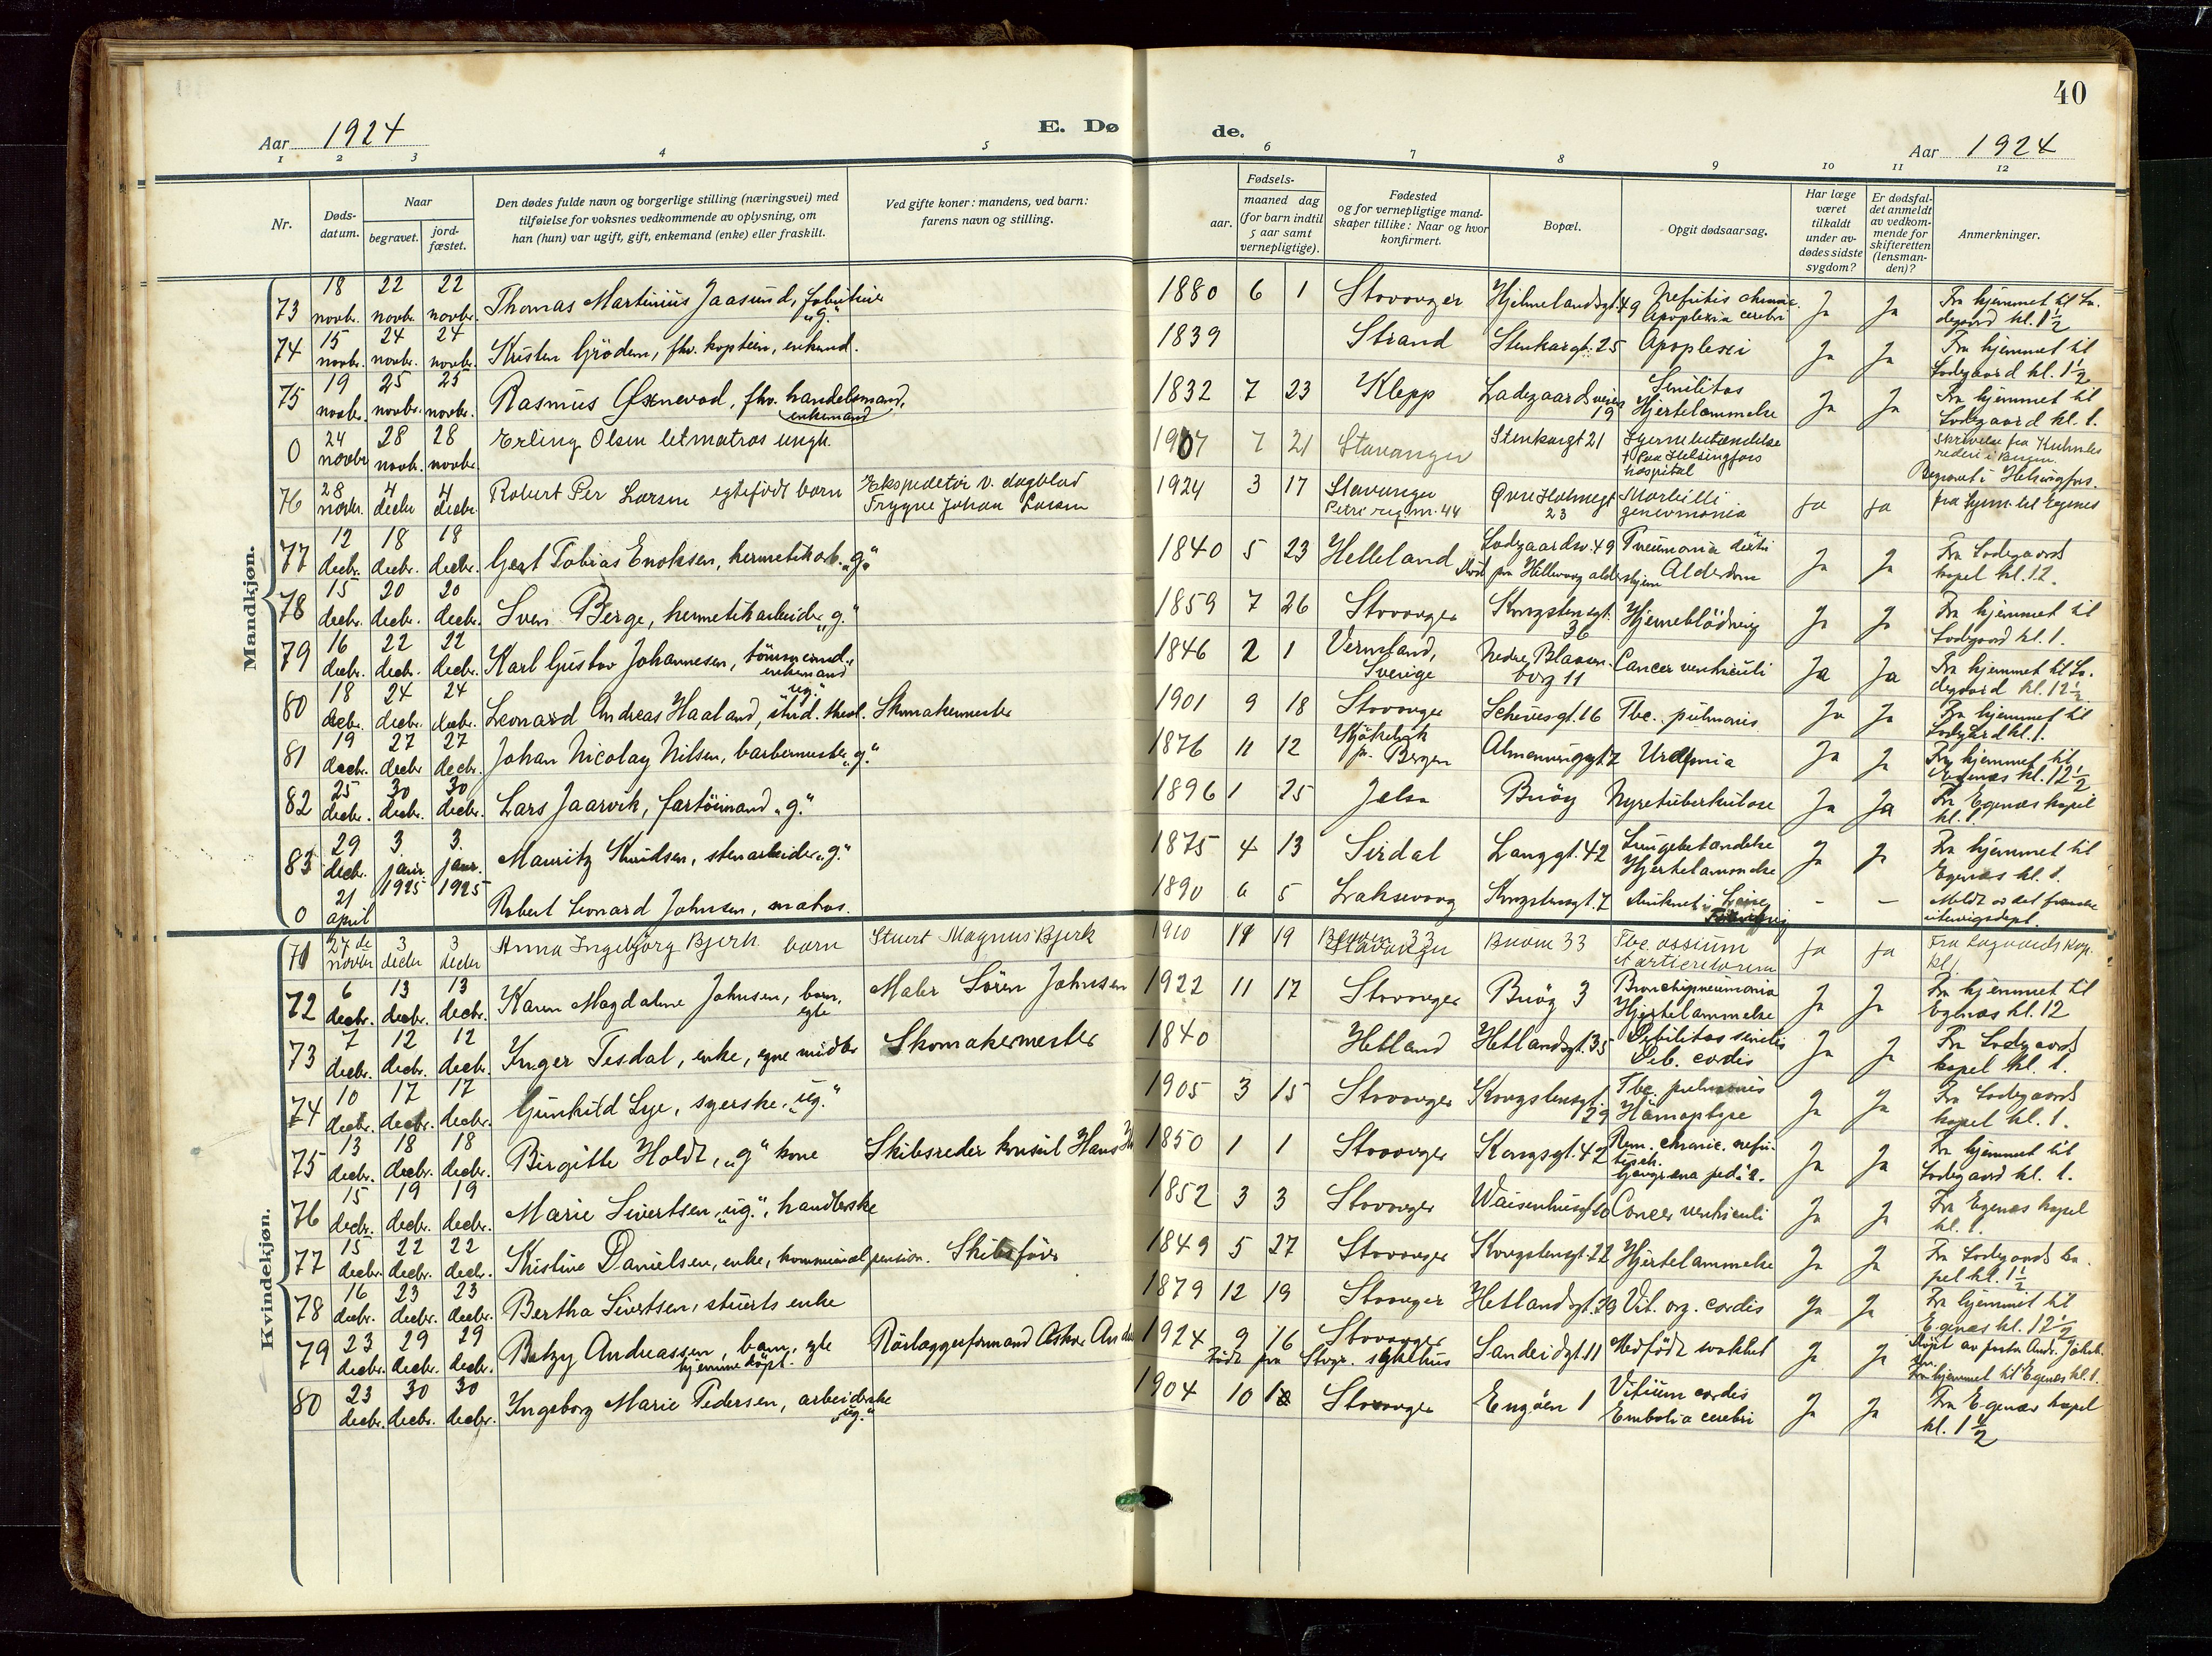 40
Aar 1924 E. Dø de. Aar 1924
1 2 3 4 5 6 7 8 9 10 11 12
Nr.
Døds-
datum.
Naar
begravet.
jord-
fæstet.
Den dødes fulde navn og borgerlige stilling (næringsvei) med
tilføielse for voksnes vedkommende av oplysning, om
han (hun) var ugift, gift, enkemand (enke) eller fraskilt.
Ved gifte koner: mandens, ved barn:
farens navn og stilling.
Fødsels-
aar.
maaned dag
(for barn indtil
5 aar samt
vernepligtige).
Fødested
og for vernepligtige mand-
skaper tillike: Naar og hvor
konfirmert.
Bopæl.
Opgit dødsaarsag.
Har læge
været
tilkaldt
under av-
dødes sidste
sygdom?
Er dødsfal-
det anmeldt
av vedkom-
mende for
skifteretten
(lensman-
den)?
Anmerkninger.
Mandkjøn.
73 18 novbr. 22 novbr. 22 novbr. Thomas Martinius Jaasund, "g." 1880 6 1 Stavanger Hjelmelandsgt. 49 Apoplexia cerebri Ja Ja Fra hjemmet til La-
degaard kl. 1½
74 15 novbr. 24 novbr. 24 novbr. Kristen Grödem, fhv. kaptein, enkemd. 1839 Strand Stenkargt. 25 Apoplexi Ja Ja Fra hjemmet til
Ladegaard kl. 1½
75 19 novbr. 25 novbr. 25 novbr. Rasmus Øxnevad, fhv. handelsmand, enkemand 1832 7 23 Klepp Ladegaardsveien 19 Senilitas
Hjertelammelse Ja Ja Fra hjemmet til
Ladegaard kl. 1.
0 24 novbr 28 novbr. 28 novbr. Erling Olsen letmatros ungk. 1907 7 21 Stavanger Stenkargt 21 Hjernebetændelse
† Paa Helsingfors
hospital skrivelse fra Kuhnles
rederi i Bergen.
Begravet i Helsingfors.
76 28 novbr. 4 decbr 4 decbr. Robert Per Larsen egtefødt barn Ekspeditör v. dagblad
Trygve Johan Larsen 1924 3 17 Stavanger
Petri reg. nr. 44 Øvre Holmegt 23 Morbilli
pneumonia Ja Ja fra hjem. til Egenes
77 12 decbr. 18 decbr. 18 decbr. Gert Tobias Enoksen, hermetikarb. "g." 1840 5 23 Helleland Ladegaardsv. 49
Död paa Hillevaag aldershjem Pneumonia
Alderdom Ja Ja Fra Ladegaards
kapel kl. 12.
78 15 decbr. 20 decbr. 20 decbr. Sven Berge, hermetikarbeider "g." 1859 7 26 Stavanger Kongstensgt. 36 Hjerneblödning Ja Ja Fra hjemmet til
Ladegaard kl. 1.
79 16 decbr. 22 decbr. 22 decbr. Karl Gustav Johannesen, tömmermd., enkemand 1846 2 1 Vermland,
Sverige Nedre Blaasen-
borg 11 Cancer ventriculi Ja Ja Fra hjemmet til La-
degaard kl. 12½
80 18 decbr. 24 decbr. 24 decbr. Leonard Andreas Haaland, stud. theol. "ug." Skomakermester 1901 9 18 Stavanger Schevesgt. 16 Tbc. pulmonis Ja Ja Fra hjemmet til
Ladegård kl. 1.
81 19 decbr. 27 decbr 27 decbr. Johan Nicolay Nilsen, barbermester "g." 1876 11 12 pr. Bergen Uræmia Ja Ja Fra hjemmet til
Egenæs kl. 12½
82 25 decbr. 30 decbr. 30 decbr. Lars Jaarvik, fartöimand "g." 1896 1 25 Jelsa Buöy Nyretuberkulose Ja Ja Fra Egenæs kapel
kl. 1.
83 29 decbr. 3. janr. 1925 3. janr. 1925 Mauritz Knudsen, stenarbeider "g." 1875 4 13 Sirdal Langgt. 42 Lungebetændelse
Hjertelammelse Ja Ja Fra hjemmet til
Egenæs kl. 1.
0 21 april Robert Leonard Johnsen, matros. 1890 6 5 Laksevaag Kongstensgt. 7 Druknet i Loire - - Meldt av det franske
utenrigsdept.
Kvindekjøn.
71 27de novbr 3 decbr 3 decbr Anna Ingebjörg Bjerk barn Stuert Magnus Bjerk 1910 11 19 Stavanger Buöm 33 Tbc. ossium
et articulorum Ja Ja Fra Lagaards kap.
kl 1
72 6 decbr. 13 decbr. 13 decbr. Karen Magdalene Johnsen, barn, egte Maler Sören Johnsen 1922 11 17 Stavanger Buöy 3 Bronchopneumonia
Hjertelammelse Ja Ja Fra hjemmet til
Egenæs kl. 12
73 7 decbr. 12 decbr. 12 decbr. Inger Tesdal, enke, egne midler Skomakermester 1840 Hetland Hetlandsgt. 35 Debilitas senilis
Deb. cordis Ja Ja Fra Ladegaards
kapel kl. 1.
74 10 decbr. 17 decbr. 17 decbr. Gunhild Lye, syerske "ug." 1905 3 15 Stavanger Kongstensgt. 29 Tbc. pulmonis
Hämoptyse Ja Ja Fra Ladegaards
kapel kl. 1.
75 13 decbr. 18 decbr. 18 decbr. Birgitte Holdt, "g" kone Skibsreder konsul Hans 1850 1 1 Stavanger Kongsgt. 42 Gangræna pedis. Ja Ja Fra hjemmet til
Ladegaard kl. 1.
76 15 decbr. 19 decbr. 19 decbr. Marie Sivertsen, "ug.", handlerske 1852 3 3 Stavanger Waisenhusgt. Cancer ventriculi Ja Ja Fra Egenæs kapel
kl. 1
77 15 decbr. 22 decbr. 22 decbr. Kristine Danielsen, enke, kommunal pension. Skibsförer 1849 5 27 Stavanger Kongstensgt. 22 Hjertelammelse Ja Ja Fra Ladegaards ka-
pel kl. 1½
78 16 decbr. 23 decbr. 23 decbr. Bertha Sivertsen, stuerts enke 1879 12 19 Stavanger Hetlandsgt. 29 Vit. org. cordis Ja Ja Fra hjemmet til
Egenæs kl. 12½
79 23 decbr. 29 decbr. 29 decbr. Betzy Andreassen, barn, egte
hjemmedöpt. Rörlæggerformand Askar 1924 9 16 Stavanger
Födt paa Stvgr. sykehus Sandeidgt. 11 Medfödt svakhet Ja Ja Döpt av pastor Andr. Jakob-
sen.
Fra hjemmet til Egenæs kl. 1.
80 23 decbr. 30 decbr. 30 decbr. Ingeborg Marie Pedersen, arbeiderske "ug." 1904 10 Stavanger Engöen 1 Vitium cordis
Embolia cerebri Ja Ja Fra Egenæs kapel
kl. 1½